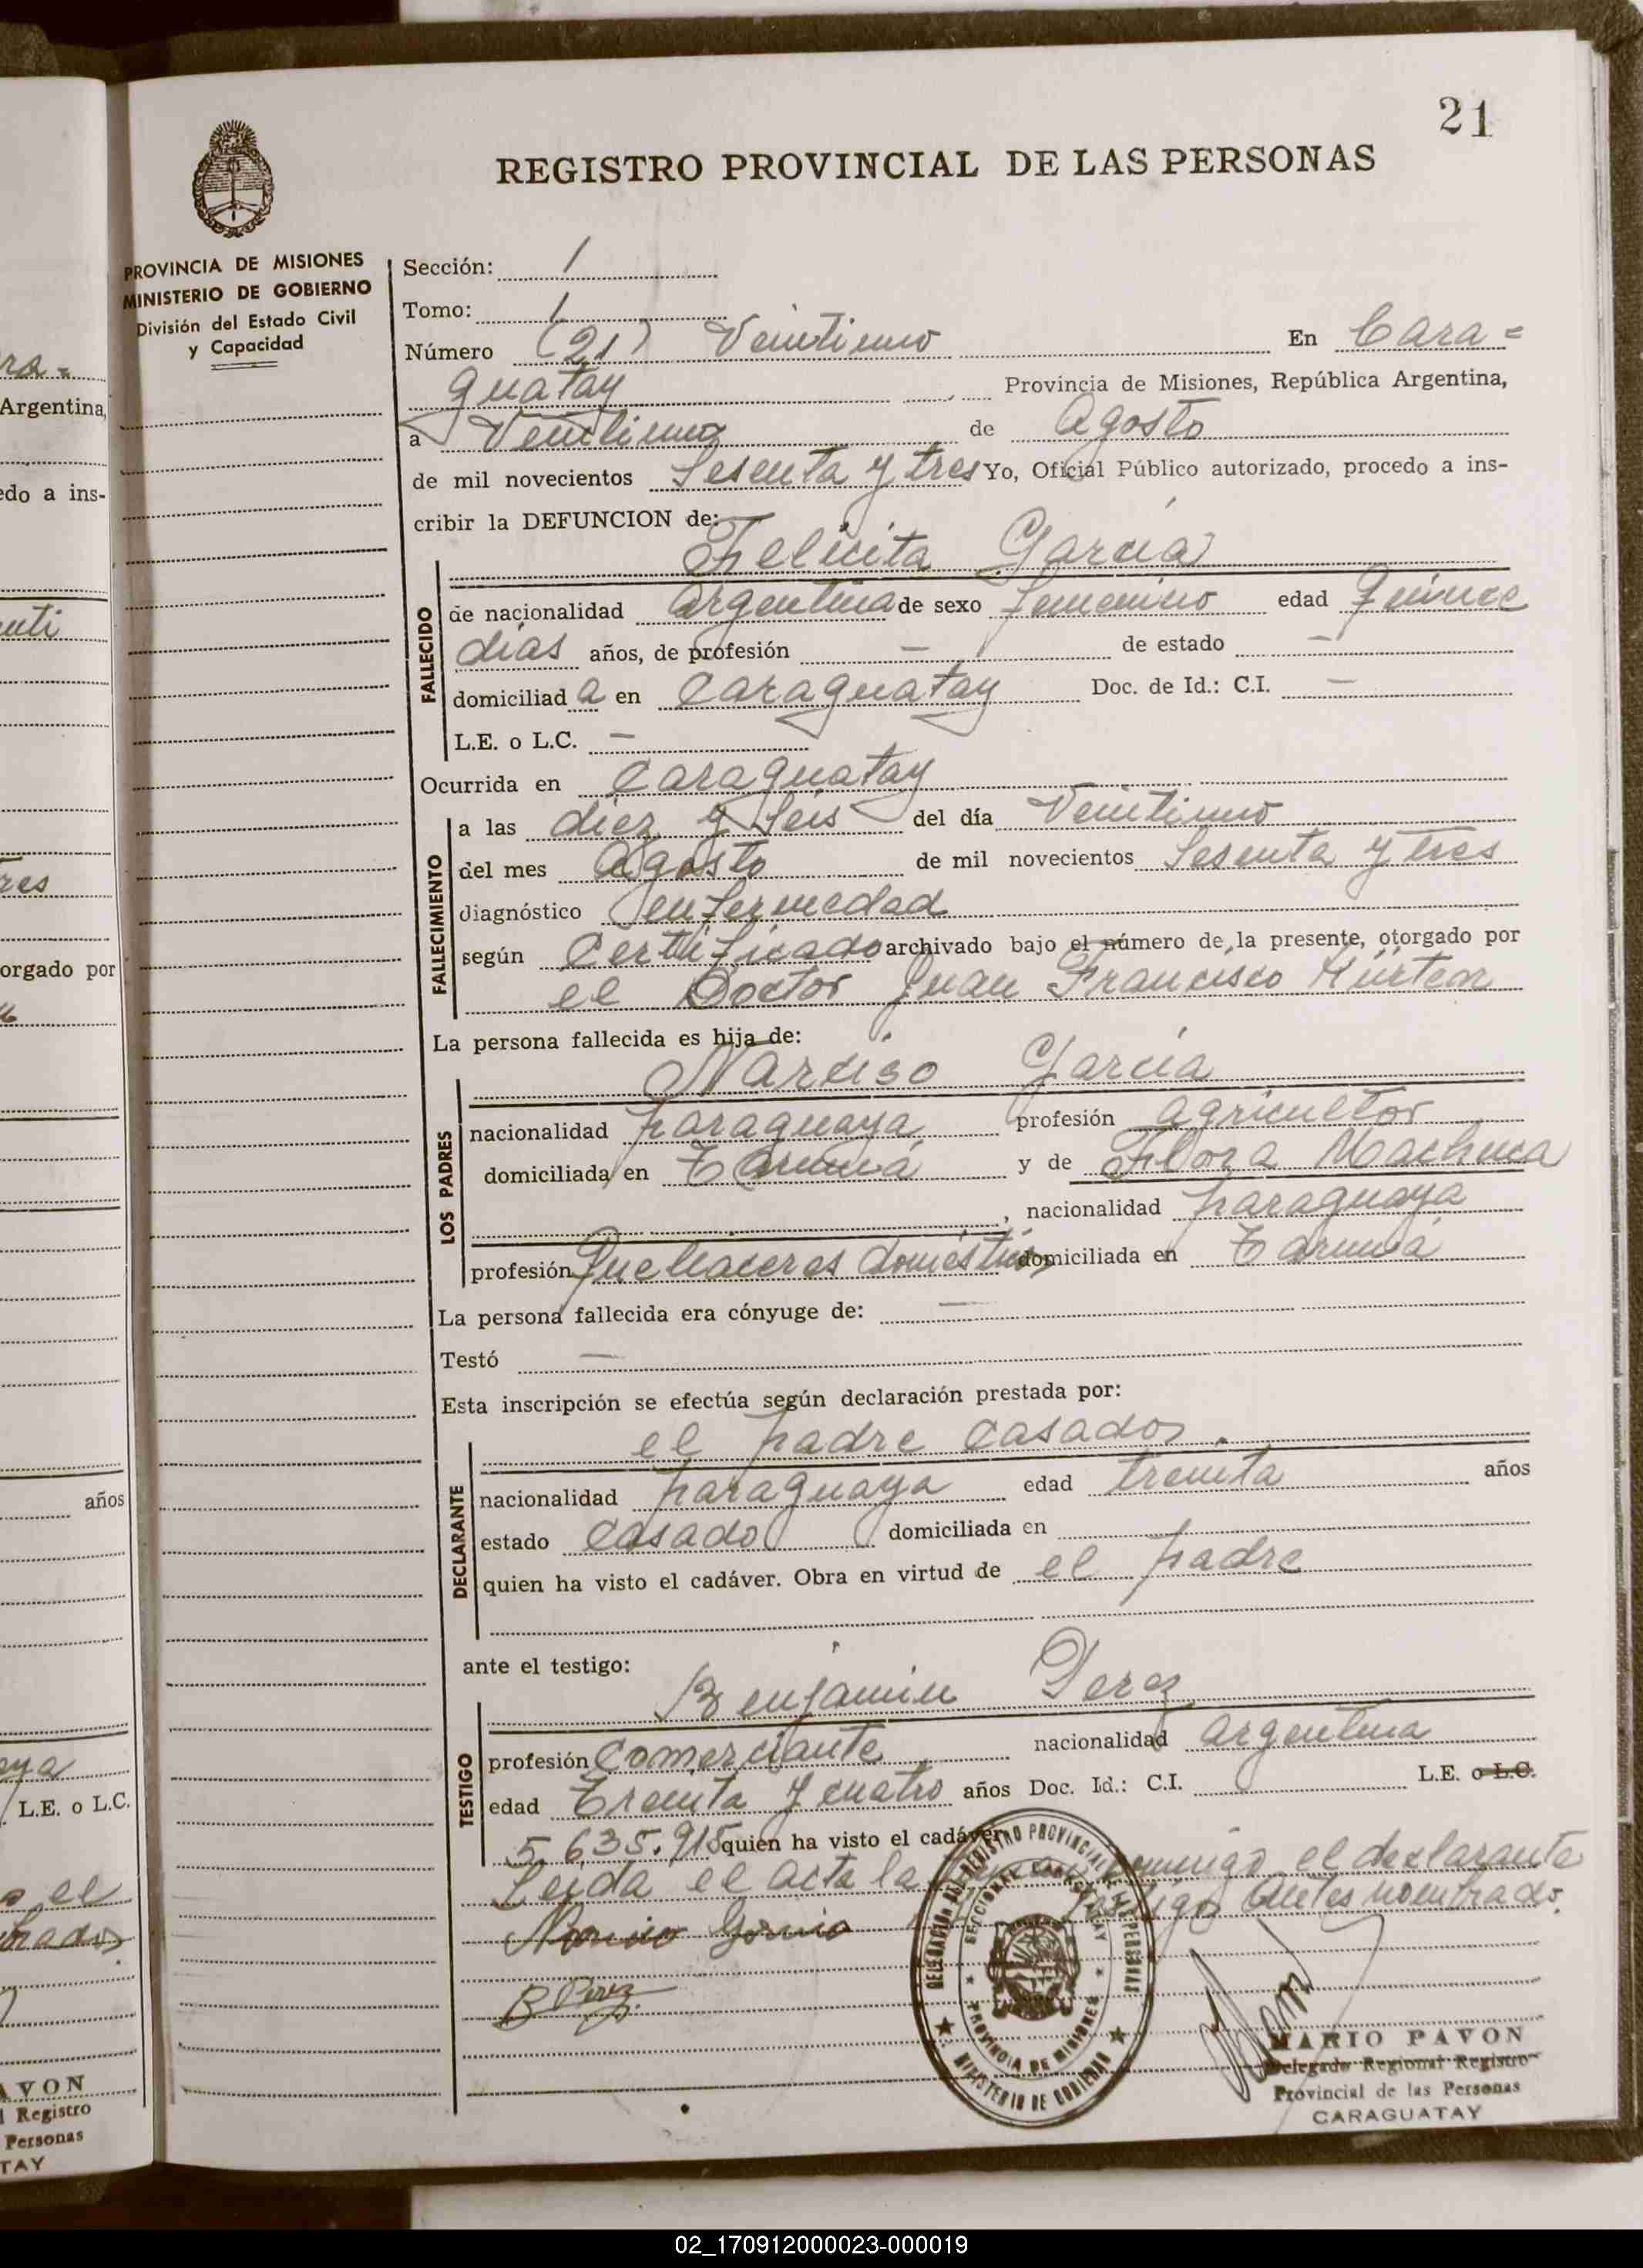 21
REGISTRO PROVINCIAL DE LAS PERSONAS
PROVINCIA DE MISIONES
MINISTERIO DE GOBIERNO
División del Estado Civil
y Capacidad
Sección: 1
Tomo: 1
Número (21) Veintiuno En Cara=
guatay Provincia de Misiones, República Argentina,
a Veintiuno de Agosto
de mil novecientos Sesenta y tres Yo, Oficial Público autorizado, procedo a ins-
cribir la DEFUNCION de:
Felicita García
FALLECIDO
de nacionalidad Argentina de sexo femenino edad Quince
días años, de profesión — de estado —
domiciliada en Caraguatay Doc. de Id.: C.I. —
L.E. o L.C. —
Ocurrida en Caraguatay
FALLECIMIENTO
a las diez y Seis del día Veintiuno
del mes Agosto de mil novecientos Sesenta y tres
diagnóstico enfermedad
según Certificado archivado bajo el número de la presente, otorgado por
el Doctor Juan Francisco Kürten
La persona fallecida es hija de:
Narciso García
LOS PADRES
nacionalidad paraguaya profesión agricultor
domiciliada en Tarumá y de Flora Machuca
, nacionalidad paraguaya
profesión Quehaceres domésticos domiciliada en Tarumá
La persona fallecida era cónyuge de: —
Testó —
Esta inscripción se efectúa según declaración prestada por:
el padre casados.
DECLARANTE
nacionalidad paraguaya edad treinta años
estado Casado domiciliada en
quien ha visto el cadáver. Obra en virtud de el padre
ante el testigo:
Benjamin Perez
TESTIGO
profesión Comerciante nacionalidad argentina
edad Treinta y cuatro años Doc. Id.: C.I. L.E. o L.C.
5.635.915 quien ha visto el cadáver
Leida el acta la conmigo el declarante
testigo Antes nombrados.
Narciso Garcia
B Perez
DELEGACION DEL REGISTRO PROVINCIAL DE LAS PERSONAS
SECCIONAL CARAGUATAY
PROVINCIA DE MISIONES
MINISTERIO DE GOBIERNO
MARIO PAVON
Delegado Regional Registro
Provincial de las Personas
CARAGUATAY
ra=
Argentina,
edo a ins-
nti
res
orgado por
años
aya
L.E. o L.C.
o el
brados
AVON
l Registro
Personas
TAY
02_170912000023-000019